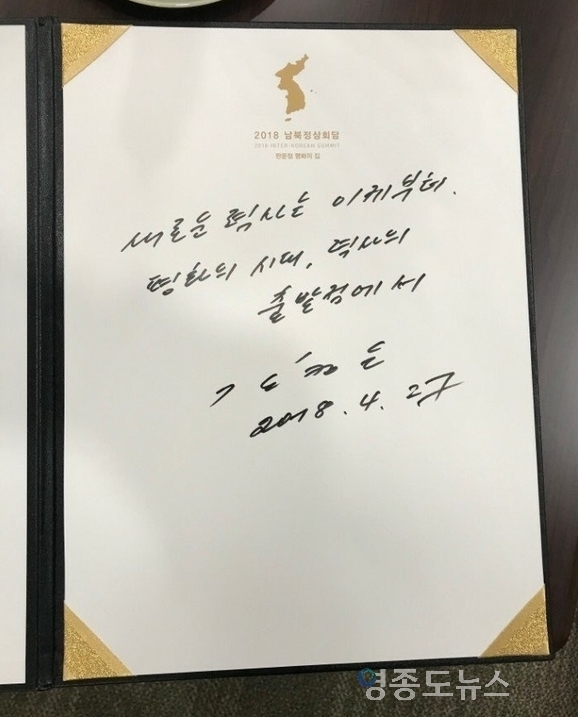 2018 남북정상회담
2018 INTER-KOREAN SUMMIT
판문점 평화의 집
새로운 력사는 이제부터.
평화의 시대, 력사의
출발점에서
김정은
2018. 4. 27
영종도뉴스